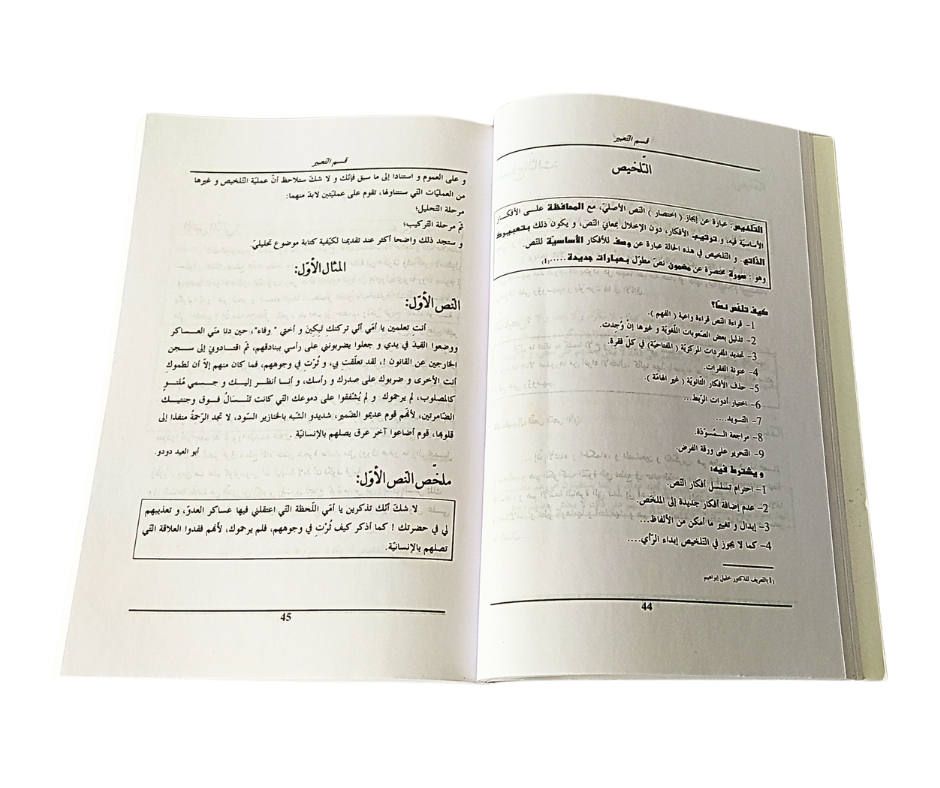 قسم التعبير
التّلخيص
التّلخيص: عبارة عن إيجاز ( اختصار ) النص الأصليّ، مع المحافظة على الأفكار
الأساسيّة فيه، و ترتيب الأفكار، دون الإخلال بمعاني النصّ، و يكون ذلك بتعبيرك
الذاتي. و التلخيص في هذه الحالة عبارة عن وصف للأفكار الأساسيّة للنص.
وهو : صورة مختصرة عن مضمون نصّ مطوّل بعبارات جديدة.....(1)
كيف تلخّص نصّا؟
1- قراءة النص قراءة واعية ( الفهم ).
2- تذليل بعض الصّعوبات اللّغويّة و غيرها إنْ وُجدت.
3- تحديد المفردات المركزيّة ( المفتاحيّة ) في كلّ فقرة.
4- عنونة الفقرات.
5- حذف الأفكار الثانويّة ( غير الهامّة ).
6- اختيار أدوات الرّبط...
7- التسويد....
8- مراجعة المسوّدة.
9- التحرير على ورقة الفرض.
و يشترط فيه:
1- احترام تسلسل أفكار النّص.
2- عدم إضافة أفكار جديدة إلى الملخص.
3- إبدال و تغيير ما أمكن من الألفاظ...
4- كما لا يجوز في التّلخيص إبداء الرّأي....
(1) التعريف للدكتور خليل إبراهيم
44
قسم التعبير
و على العموم و استنادا إلى ما سبق فإنّك و لا شكّ ستلاحظ أنّ عمليّة التّلخيص و غيرها
من العمليّات التي ستناولها، تقوم على عمليّتين لابدّ منهما:
مرحلة التحليل؛
ثمّ مرحلة التّركيب؛
و ستجد ذلك واضحا أكثر عند تقديمنا لكيّفية كتابة موضوع تحليليّ.
المثال الأوّل:
النص الأوّل:
أنتِ تعلمين يا أمّي أنّي تركتك تبكينَ و أختي " وفاء"، حين دنا منّي العساكر
ووضعوا القيدَ في يدي و جعلوا يضربونني على رأسي ببنادقهم، ثم اقتادونيَ إلى سجن
الخارجين عن القانون !، لقد تعلّقتِ بي، و ثُرْتِ في وجوههم، فما كان منهم إلاّ أن لطموك
أنت الأخرى و ضربوك على صدرك و رأسك، و أنا أنظر إليك و جسمي مُلتوٍ
كالمصلوب، لم يرحموكِ و لم يُشْفقوا على دموعك التي كانت تَنْسَالُ فوق وجنتيك
الضّامرتين، لأنّهم قوم عديمو الضّمير، شديدو الشّبه بالخنازير السّود، لا تجد الرّحمةُ منفذا إلى
قلوبها، قوم أضاعوا آخر عرق يصلهم بالإنسانيّة .
أبو العيد دودو.
ملخّص النّص الأوّل:
لا شكّ أنّك تذكرين يا أمّي اللّحظة التي اعتقلني فيها عساكر العدوّ، و تعذيبهم
لي في حضرتك ! كما أذكر كيف ثُرْتِ في وجوههم، فلم يرحموك، لأنّهم فقدوا العلاقة التي
تصلهم بالإنسانيّة.
45